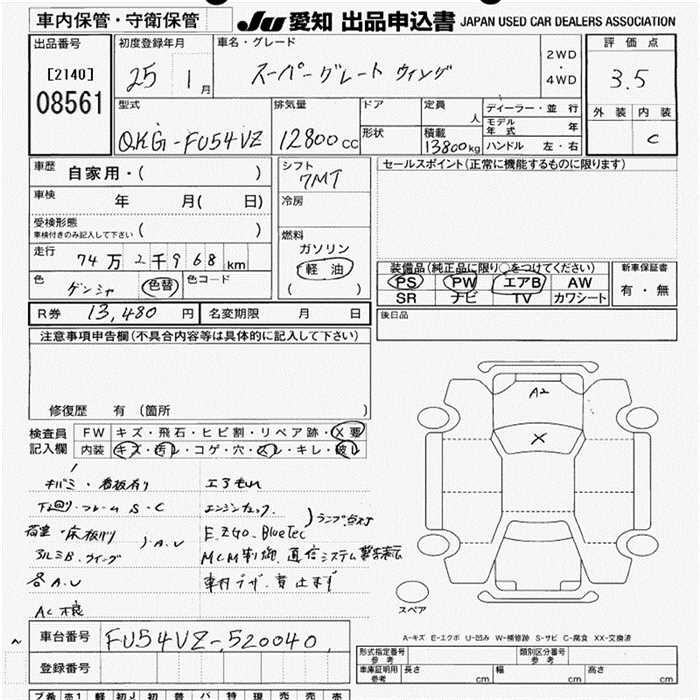 車内保管・守衛保管
JU 愛知 出品申込書 JAPAN USED CAR DEALERS ASSOCIATION
出品番号
[2140]
08561
初度登録年月
25 1月
車名・グレード
スーパーグレート ウィング
2WD
・
4WD
評価点
3.5
外装 内装
C
型式
QKG-FU54VZ
排気量
12800cc
ドア
形状
定員
人
積載
13800kg
ディーラー・並行
モデル年式 年
ハンドル 左・右
車歴 自家用・( )
車検 年 月( 日)
受検形態
車検付きのみ記入して下さい ( )
走行
74万2千968km
色
ゲンシャ 色替
色コード
シフト
7MT
冷房
燃料
ガソリン
軽油
( )
セールスポイント(正常に機能するものに限ります)
装備品(純正品に限り○をつけてください)
PS PW エアB AW
SR ナビ TV カワシート
新車保証書
有・無
R券 13,480円
名変期限 月 日
後日品
注意事項申告欄(不具合内容等は具体的に記入して下さい)
修復歴 有(箇所 )
検査員記入欄
FW キズ・飛石・ヒビ割・リペア跡・X要
内装 キズ・汚レ・コゲ・穴・スレ・キレ・破レ
キバミ・看板有り
下回り・フレーム S・C
荷室・床板サリ
アルミB・ウイング
)A.U
各A.U
AC不良
エアもれ
エンジンチェック
E.ZGO.BlueTec
)ランプ点灯
MCM制御
通信システム
A2
X
スペア
A-キズ E-エクボ U-凹み W-補修跡 S-サビ C-腐食 XX-交換済
車台番号 FU54VZ-520040
登録番号
形式指定番号
参考
類別区分番号
参考
車庫証明用
参考
長さ cm
幅 cm
高さ cm